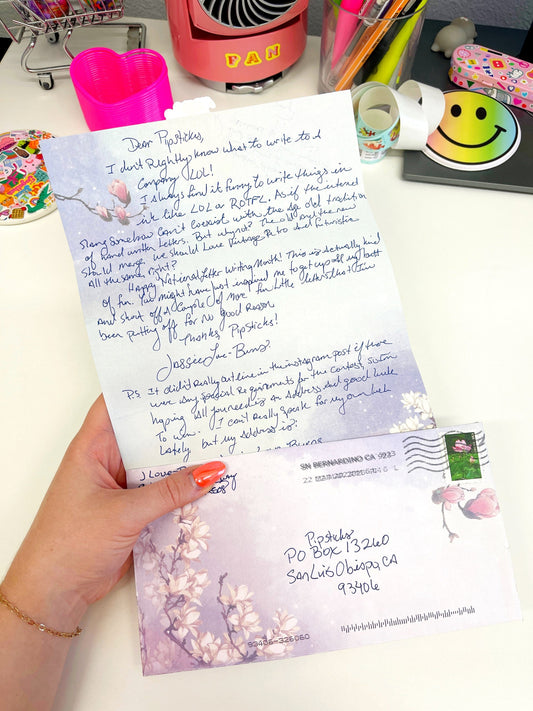 FAN
Dear Pipsticks,
I don't Rightly know what to write to A
Company LOL!
I always find it funny to write things in
ink like LOL or ROTFL. As if the internet
slang somehow can't coexist with the age old tradition
of hand written letters. But why not? The old and the new
should merge, we should Love Vintage Retro and Futuristic
All the same, right?
Happy National Letter Writing Month! This is actually kind
of fun. You might have just inspired me to get up off my butt
and shoot off a couple of more fun little letters that I've
been putting off for No good Reason.
Thanks, Pipsticks!
P.S. It didn't Really outline in the instagram post if there
were any special Requirements for the contest, so I'm
hoping all you need is an address and good luck
To win. I can't Really speak for my own luck
Lately but my address is:
SN BERNARDINO CA 9923
Pipsticks
PO BOX 13260
San Luis Obispo, CA
93406
93406-326060